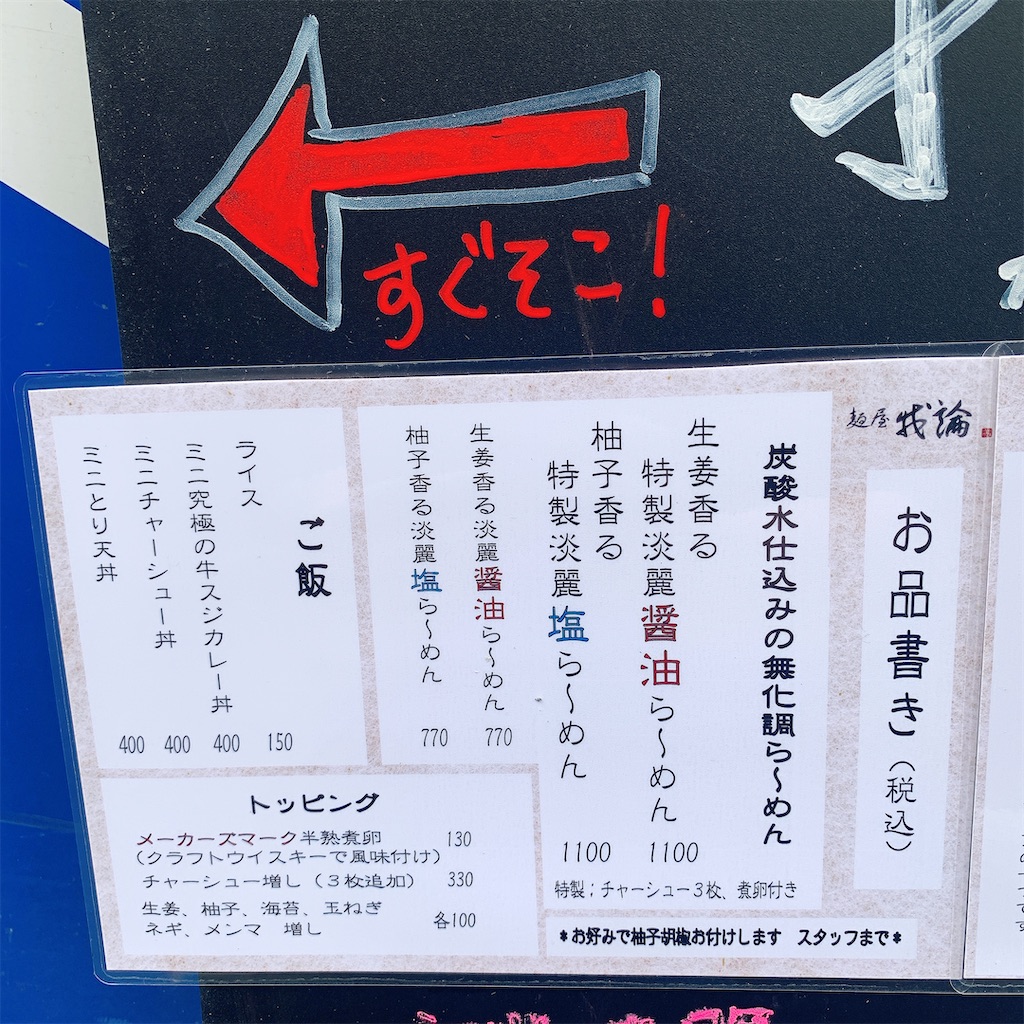 すぐそこ!
麺屋 我論
お品書き(税込)
炭酸水仕込みの無化調ら〜めん
生姜香る
特製淡麗醤油ら〜めん
1100
柚子香る
特製淡麗塩ら〜めん
1100
特製;チャーシュー3枚、煮卵付き
*お好みで柚子胡椒お付けします スタッフまで*
生姜香る淡麗醤油ら〜めん 770
柚子香る淡麗塩ら〜めん 770
ご飯
ライス 150
ミニ究極の牛スジカレー丼 400
ミニチャーシュー丼 400
ミニとり天丼 400
トッピング
メーカーズマーク半熟煮卵 130
(クラフトウイスキーで風味付け)
チャーシュー増し(3枚追加) 330
生姜、柚子、海苔、玉ねぎ
ネギ、メンマ 増し 各100